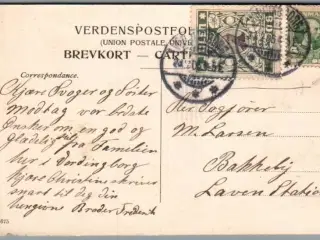 VERDENSPOSTFO
(UNION POSTALE UNIV
BREVKORT — CART
Correspondance.
Kjære Svoger og Søster
Modtag vor bedste
Ønsker om en god og
Glædelig Jul fra Familien
her i Vordingborg
Hjær Christine skriver
snart til dig din
hengivne Broder Frederik
Her Fogjører
M. Larsen
Bakkebij
Laven Station